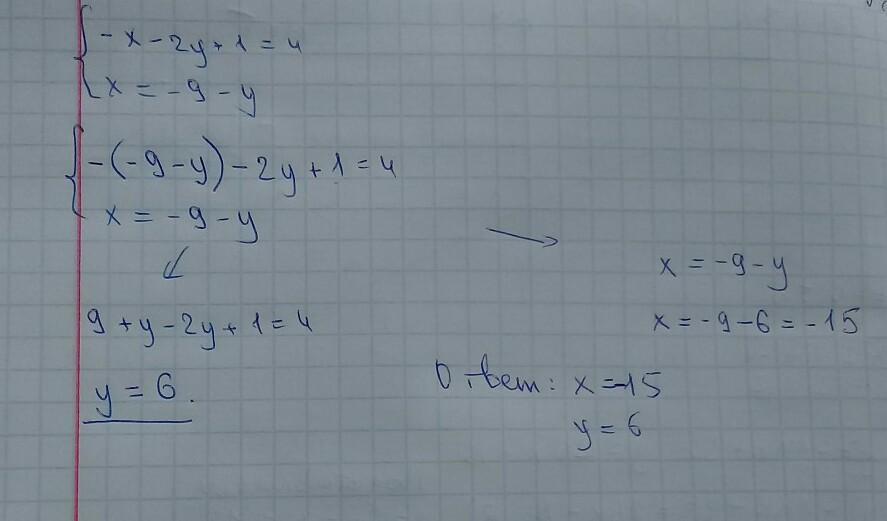 -x-2y+1=4
x=-9-y
-(-9-y)-2y+1=4
x=-9-y
9+y-2y+1=4
y=6.
x=-9-y
x=-9-6=-15
Ответ: x=-15
y=6